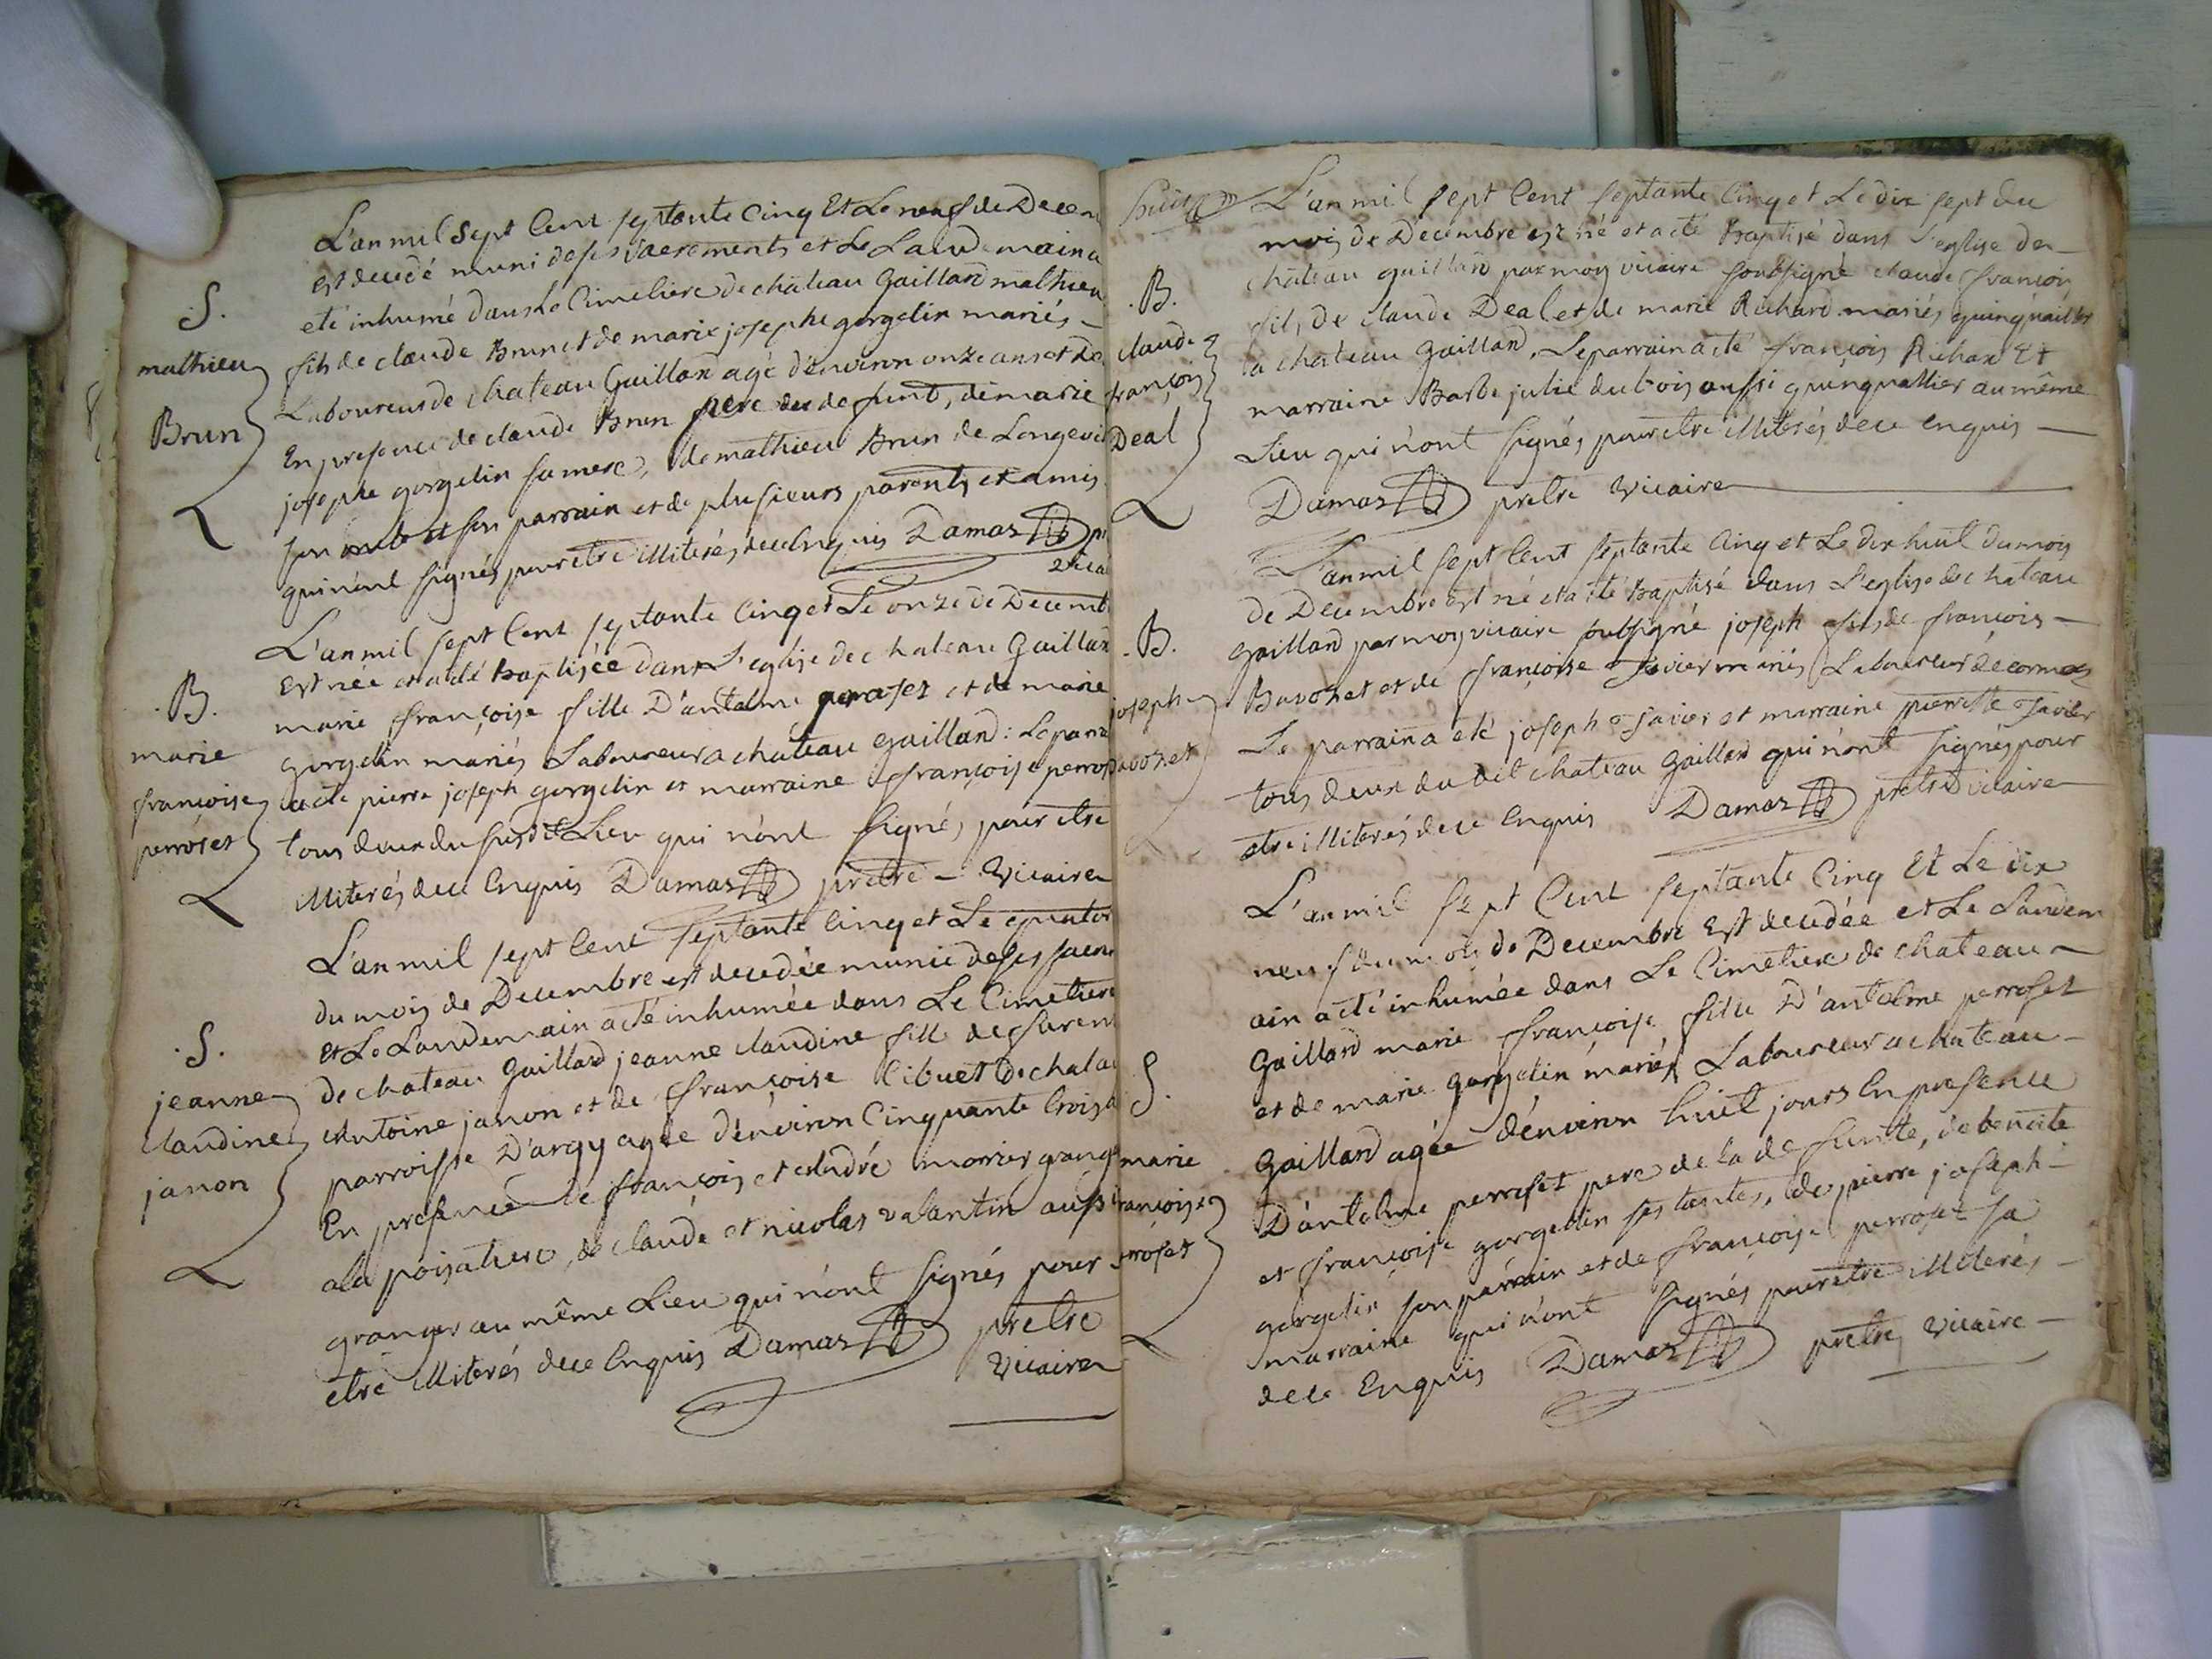 L'an mil Sept Cent septante Cinq Et Le neuf de Decem
Est decedé muni de ses Sacrements et Le Landemain a
eté inhumé dans Le Cimetiere de château Gaillard mathieu
fils de claude Brun et de marie josephe gorgelin mariés
Laboureurs de chateau Gaillard agé d'environ onze ans et de
En presence de claude Brun pere du defunt, de marie
josephe gorgelin sa mere, de mathieu Brun de Longevil
son et son parrain et de plusieurs parents et amis
qui n'ont signés pour etre illiterés de ce Enquis Damas
vicai
S.
mathieu
Brun
L'an mil sept Cent septante Cinq et Le onze de Decemb
Est née et a eté baptisée dans L'eglise de chateau Gaillar
marie françoise fille D'antelme perroset et de marie
gorgelin mariés Laboureur a château gaillard : Le parra
a eté pierre joseph gorgelin et marraine françoise perros
tous deux du susdit Lieu qui n'ont signés pour etre
illiterés de ce Enquis Damas prêtre - Vicaire
.B.
marie
françoise
perroset
L'an mil sept Cent septante Cinq et Le quator
du mois de Decembre est decedée munie de ses sacre
et Le Landemain a eté inhumée dans Le Cimetiere
de chateau Gaillard jeanne claudine fille de furent
Antoine janon et de françoise Cibuet De chala
parroisse D'argy agée d'environ Cinquante trois a
En presence de françois et André morrier grange
a la poisatiere, de claude et nicolas valantin aussi
granger au même Lieu qui n'ont signés pour
etre illiterés de ce Enquis Damas prêtre
Vicaire
.S.
jeanne
claudine
janon
L'an mil sept Cent septante Cinq et Le dix sept du
mois de Décembre est né et a eté baptisé dans L'eglise de
château gaillard par moy vicaire soussigné claude françois
fils de claude Deal et de marie Richard mariés
a chateau Gaillard, Le parrain a eté françois Richard Et
marraine Barbe julie dubois aussi au même
Lieu qui n'ont signés pour etre illiterés de ce enquis
Damas prêtre Vicaire
.B.
claude
françois
Deal
L'an mil sept Cent septante Cinq et Le dix huit du mois
de Decembre est né et a eté baptisé dans L'eglise de chateau
gaillard par moy vicaire soussigné joseph fils de françois
Bavozet et de françoise Savier mariés Laboureur de cormoz
Le parrain a eté joseph Savier et marraine pierrette Savier
tous deux du dit chateau Gaillard qui n'ont signés pour
etre illiterés de ce Enquis Damas prêtre vicaire
.B.
joseph
bavozet
L'an mil sept Cent septante Cinq Et Le dix
neuf du mois de Decembre Est decedée et Le Landem
ain a eté inhumée dans Le Cimetiere de chateau
Gaillard marie françoise fille D'antelme perroset
et de marie gorgelin mariés Laboureur a chateau
Gaillard agée d'environ huit jours En presence
D'antelme perroset pere de la defunte, de benoite
et françoise gorgelin ses tantes, de pierre joseph
gorgelin son parrain et de françoise perroset sa
marraine qui n'ont signés pour etre illiterés
de ce Enquis Damas prêtre Vicaire
S.
marie
françoise
perroset